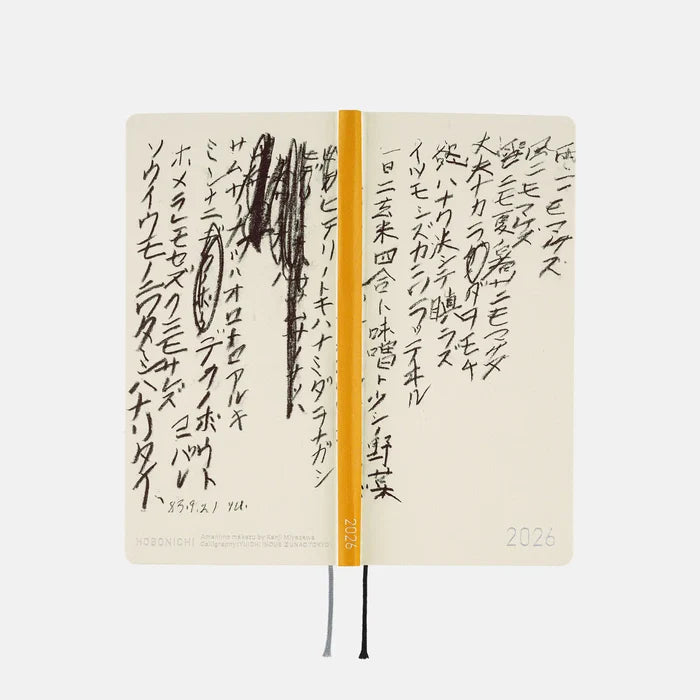 雨ニモマケズ
風ニモマケズ
雪ニモ夏ノ暑サニモマケヌ
丈夫ナカラダヲモチ
慾ハナク決シテ瞋ラズ
イツモシズカニワラッテヰル
一日ニ玄米四合ト味噌ト少シノ野菜
ヒデリノトキハナミダヲナガシ
サムサノナツハオロオロアルキ
ミンナニデクノボウトヨバレ
ホメラレモセズクニモサレズ
ソウイウモノニワタシハナリタイ
83.9.21 yu.
HOBONICHI
Amenimo makezu by Kenji Miyazawa
Calligraphy: YU-ICHI INOUE
2026
2026